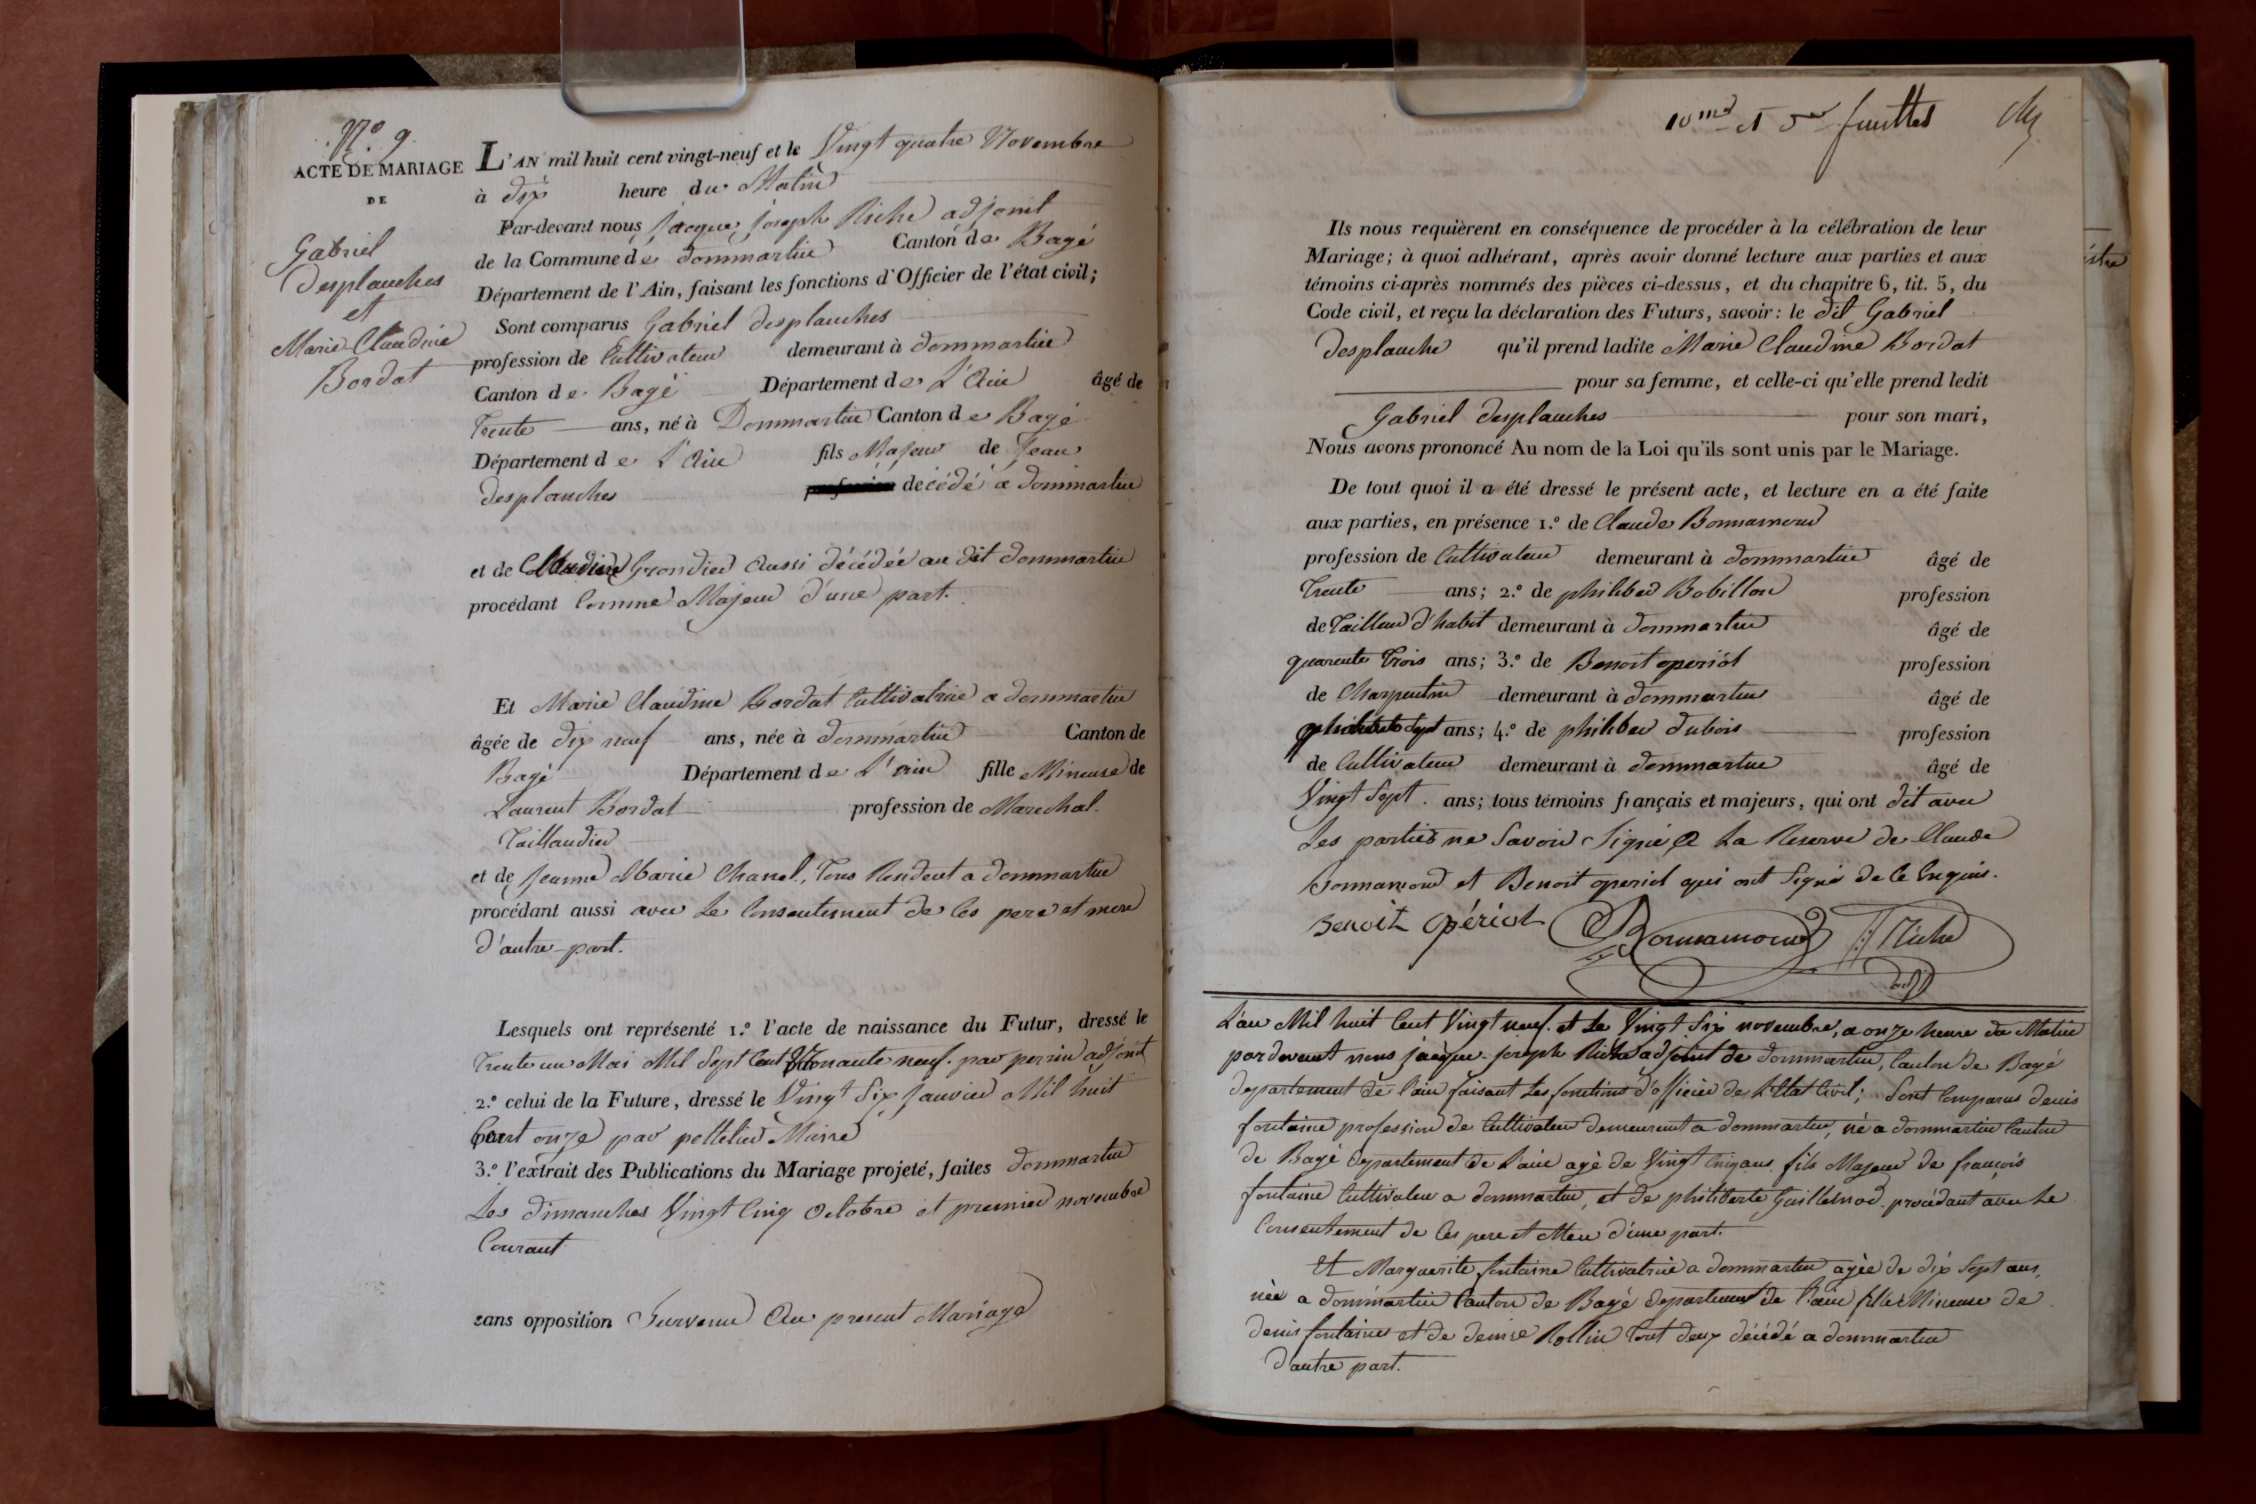 N.o 9
ACTE DE MARIAGE
DE
Gabriel
Desplanches
et
Marie Claudine
Bordat
L'AN mil huit cent vingt-neuf et le Vingt quatre Novembre
à dix heure du Matin
Par-devant nous Jacque Joseph Riche adjoint
de la Commune de dommartin Canton de Bagé
Département de l'Ain, faisant les fonctions d'Officier de l'état civil;
Sont comparus Gabriel desplanches
profession de Cultivateur demeurant à dommartin
Canton de Bagé Département de L'Ain âgé de
Trente ans, né à Dommartin Canton de Bagé
Département de L'Ain fils Majeur de Jean
desplanches décédé a dommartin
et de Claudine Grondier Aussi décédée au dit dommartin
procédant Comme Majeur d'une part.
Et Marie Claudine Bordat Cultivatrice a dommartin
âgée de dix neuf ans, née à dommartin Canton de
Bagé Département de L'ain fille Mineure de
Laurent Bordat profession de Marechal
Taillandier
et de Jeanne Marie Chanel, Tous Residents a dommartin
procédant aussi avec Le Consentement de Ces pere et mere
d'autre part.
Lesquels ont représenté 1.o l'acte de naissance du Futur, dressé le
Trente un Mai Mil Sept Cent Nonante neuf. par perrin adjoint
2.o celui de la Future, dressé le Vingt Six Janvier Mil huit
Cent onze par pelletier Maire
3.o l'extrait des Publications du Mariage projeté, faites dommartin
Les dimanches Vingt Cinq Octobre et premier novembre
Courant
sans opposition Survenu Au present Mariage
10me et 5er feuilles
Ils nous requièrent en conséquence de procéder à la célébration de leur
Mariage; à quoi adhérant, après avoir donné lecture aux parties et aux
témoins ci-après nommés des pièces ci-dessus, et du chapitre 6, tit. 5, du
Code civil, et reçu la déclaration des Futurs, savoir: le dit Gabriel
desplanche qu'il prend ladite Marie Claudine Bordat
pour sa femme, et celle-ci qu'elle prend ledit
Gabriel desplanches pour son mari,
Nous avons prononcé Au nom de la Loi qu'ils sont unis par le Mariage.
De tout quoi il a été dressé le présent acte, et lecture en a été faite
aux parties, en présence 1.o de Claude Bonnamour
profession de Cultivateur demeurant à dommartin âgé de
Trente ans; 2.o de philiber Bobillon profession
de Tailleur d'habit demeurant à dommartin âgé de
quarente Trois ans; 3.o de Benoit operiol profession
de Charpentier demeurant à dommartin âgé de
ans; 4.o de philiber dubois profession
de Cultivateur demeurant à dommartin âgé de
Vingt Sept. ans; tous témoins français et majeurs, qui ont dit avec
Les parties ne Savoir Signé, a La Reserve de Claude
Bonnamour et Benoit operiol qui ont Signé de Ce Enquis.
Benoit Opériol Bonnamour Riche
adj
L'an Mil huit Cent Vingt neuf. et Le Vingt Six novembre, a onze heure du Matin
par devent nous jacque joseph Riche adjoint de dommartin, Canton de Bagé
departement de L'ain faisant Les fonctions d'officier de L'Etat Civil; Sont Comparus denis
fontaine profession de Cultivateur demeurant a dommartin, né a dommartin Canton
de Bagé departement de L'ain agé de Vingt Cinq ans fils Majeur de francois
fontaine Cultivateur a dommartin, et de philiberte Guillemod procédant avec Le
Consentement de Ces pere et Mere d'une part.
Et Marguerite fontaine Cultivatrice a dommartin agée de dix Sept ans,
née a dommartin Canton de Bagé departement de L'ain fille Mineure de
denis fontaine et de denise Rollin Tout deux décédé a dommartin
d'autre part.